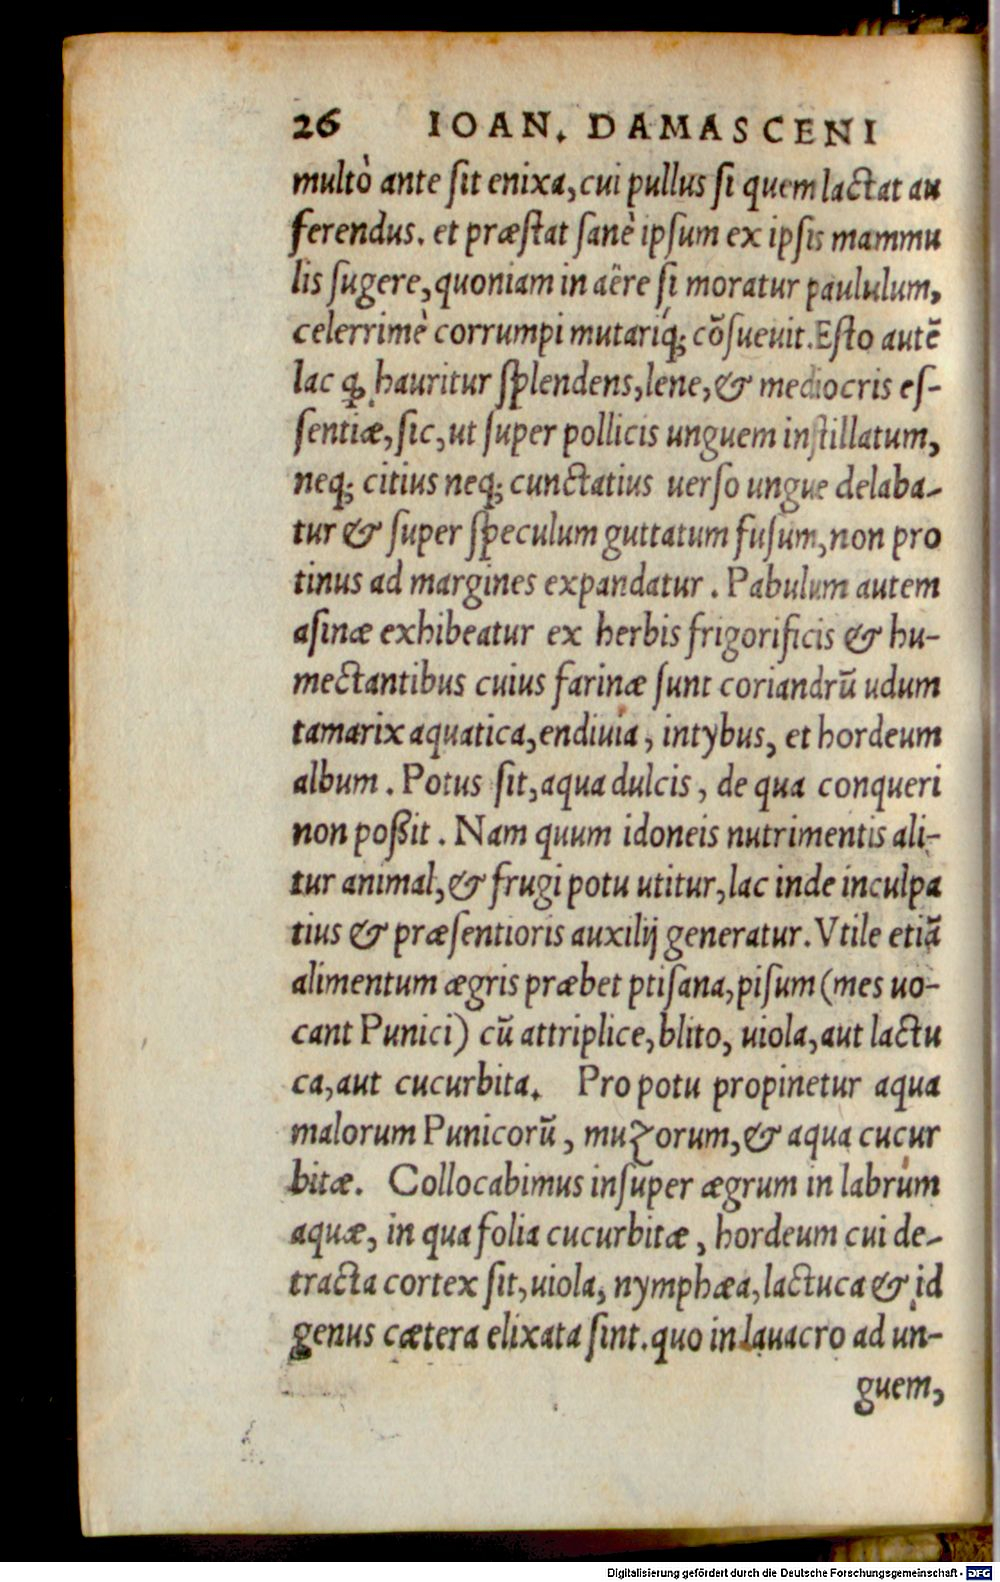 26 IOAN. DAMASCENI
multò ante ſit enixa, cui pullus ſi quem lactat au
ferendus. et præſtat ſanè ipſum ex ipſis mammu
lis ſugere, quoniam in aëre ſi moratur paululum,
celerrimè corrumpi mutariq́; cōſueuit. Eſto autē
lac ꝙ hauritur ſplendens, lene, & mediocris eſ-
ſentiæ, ſic, ut ſuper pollicis unguem inſtillatum,
neq; citius neq; cunctatius uerſo ungue delaba-
tur & ſuper ſpeculum guttatum fuſum, non pro
tinus ad margines expandatur. Pabulum autem
aſinæ exhibeatur ex herbis frigorificis & hu-
mectantibus cuius farinæ ſunt coriandrū udum
tamarix aquatica, endiuia, intybus, et hordeum
album. Potus ſit, aqua dulcis, de qua conqueri
non poßit. Nam quum idoneis nutrimentis ali-
tur animal, & frugi potu utitur, lac inde inculpa
tius & præſentioris auxilij generatur. Vtile etiā
alimentum ægris præbet ptiſana, piſum (mes uo-
cant Punici) cū attriplice, blito, uiola, aut lactu
ca, aut cucurbita. Pro potu propinetur aqua
malorum Punicorū, muzorum, & aqua cucur
bitæ. Collocabimus inſuper ægrum in labrum
aquæ, in qua folia cucurbitæ, hordeum cui de-
tracta cortex ſit, uiola, nymphæa, lactuca & id
genus cætera elixata ſint. quo in lauacro ad un-
guem,
Digitalisierung gefördert durch die Deutsche Forschungsgemeinschaft - DFG